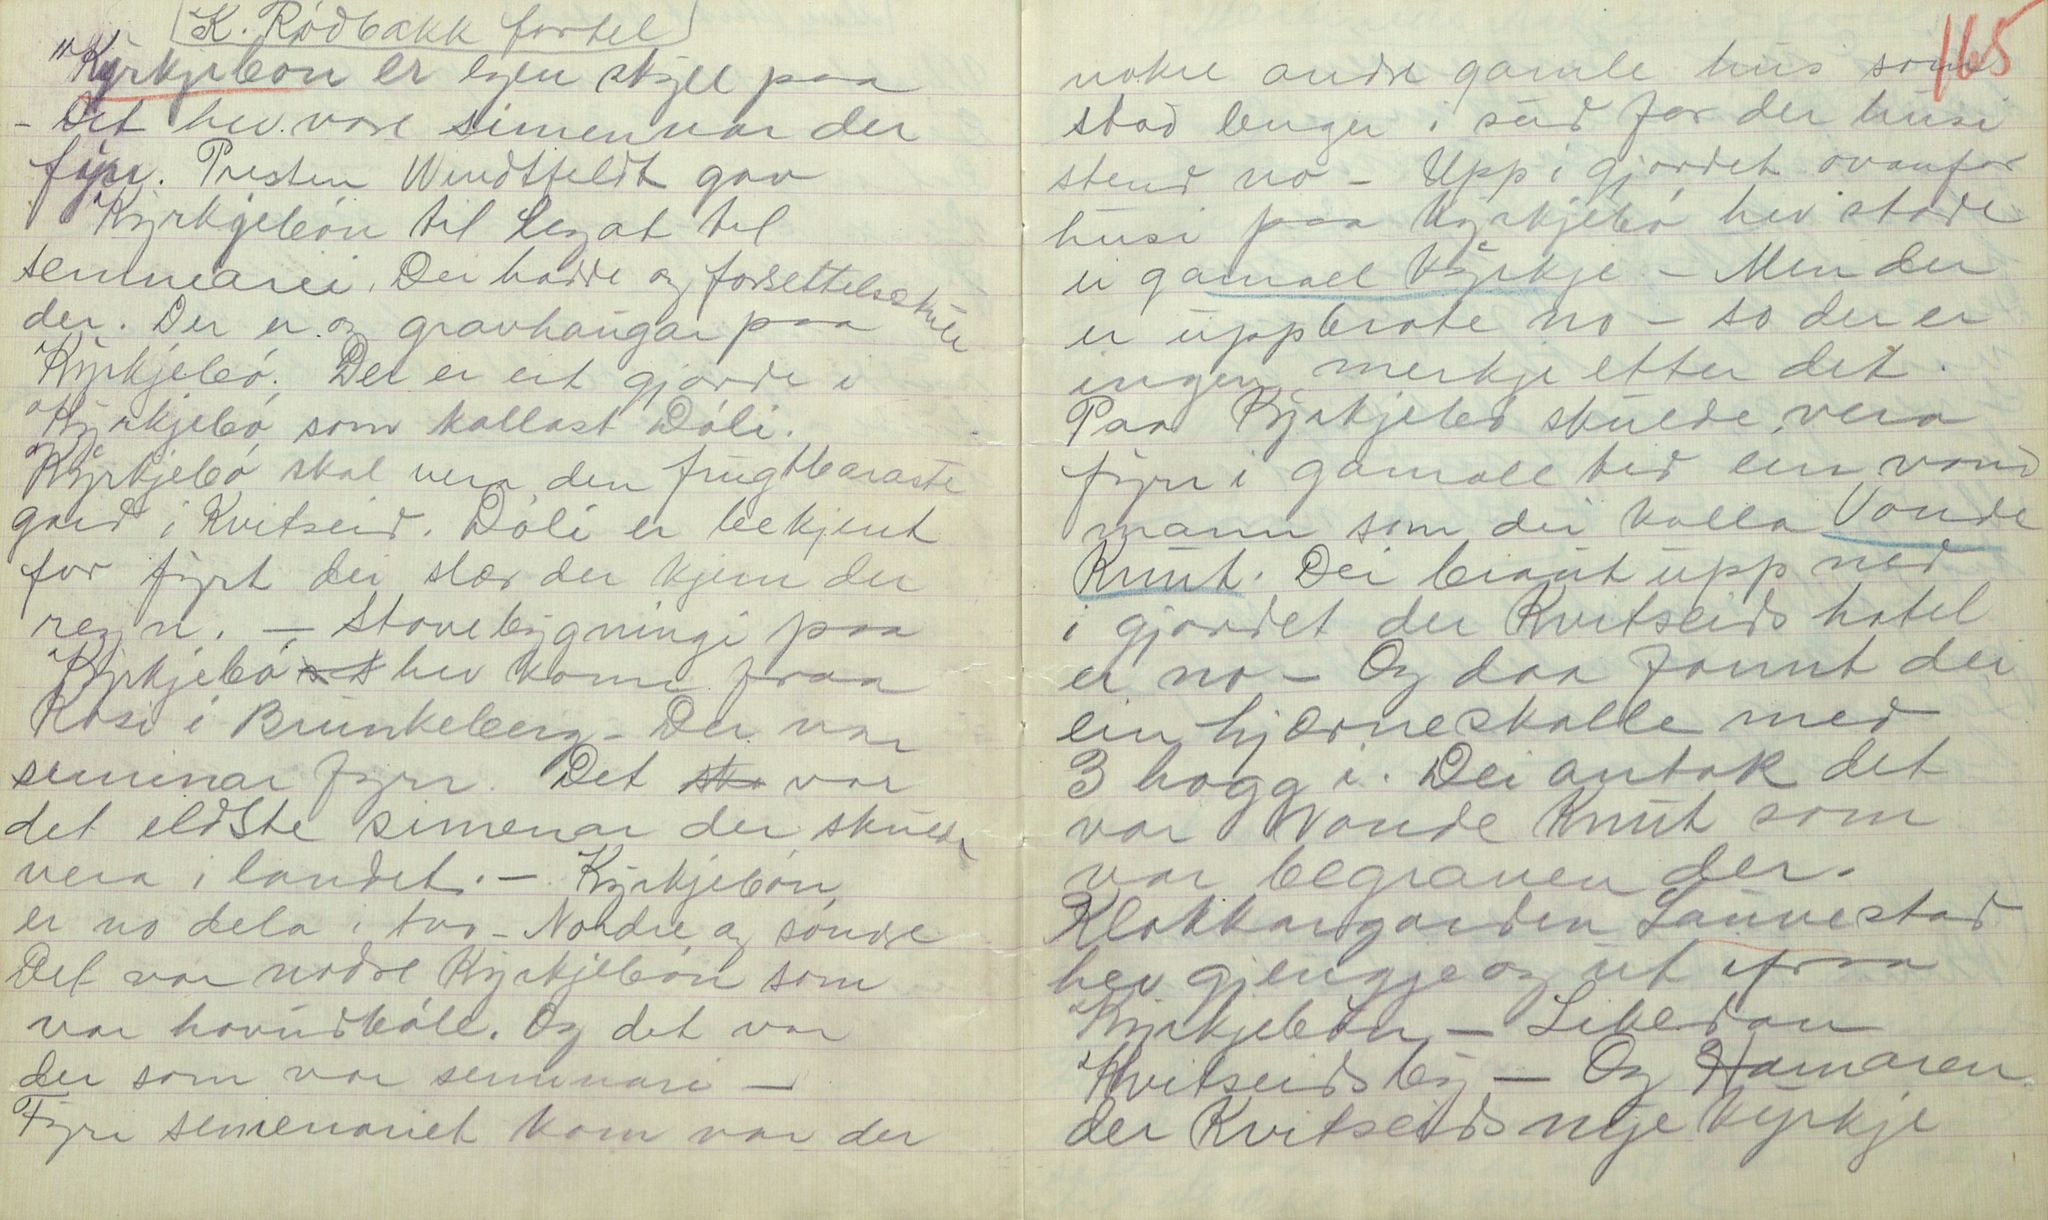 K. Rødbakk fortel
"Kyrkjebøn er egen skyll paa
- Det hev vore simennar der
fyrr. Presten Windtfeldt gav
Kyrkjebøn til legat til
semneariei. Dei hadde og forsettelsskule
der. Der er og gravhaugar paa
Kyrkjebø. Der er eit gjorde i
Kyrkjebø som kallast Døli.
Kyrkjebø skal vera den frugtbaraste
gard i Kvitseid. Døli er bekjent
for fyrt dei slær der kjem der
regn. - Stovebygningi paa
Kyrkjebø hev kome fraa
Kosi i Brunkeberg - Der var
seminar fyrr. Det var
det eldste simenar der skulde
vera i landet. - Kyrkjebøn
er no dela i tvo - Nordre og søndre
Det var nodre Kyrkjebøn som
var hovudbøle. Og det var
der som var seminari -
Fyrr semenariet kom var der
165
nokre andre gamle hus som
stod lenger i sud for der husi
stend no - Upp i gjordet ovanfor
husi paa Kyrkjebø hev stade
ei gamall Kyrkje - Men den
er uppbrote no - so der er
ingen merkje etter det.
Paa Kyrkjebø skulde vera
fyrr i gamall tid ein vond
mann som dei kalla Vonde
Knut. Dei braut upp ned
i gjordet der Kvitseids hotel
er no - Og daa fonnt dei
ein hjærneskalle med
3 hogg i. Dei antok det
var Vonde Knut som
var begraven der.
Klokkargarden Saunestad
hev gjenge og ut fraa
Kyrkjebøn - Liberdan
Kvitseidsby - Og Hamaren
der Kvitseids nye kyrkje